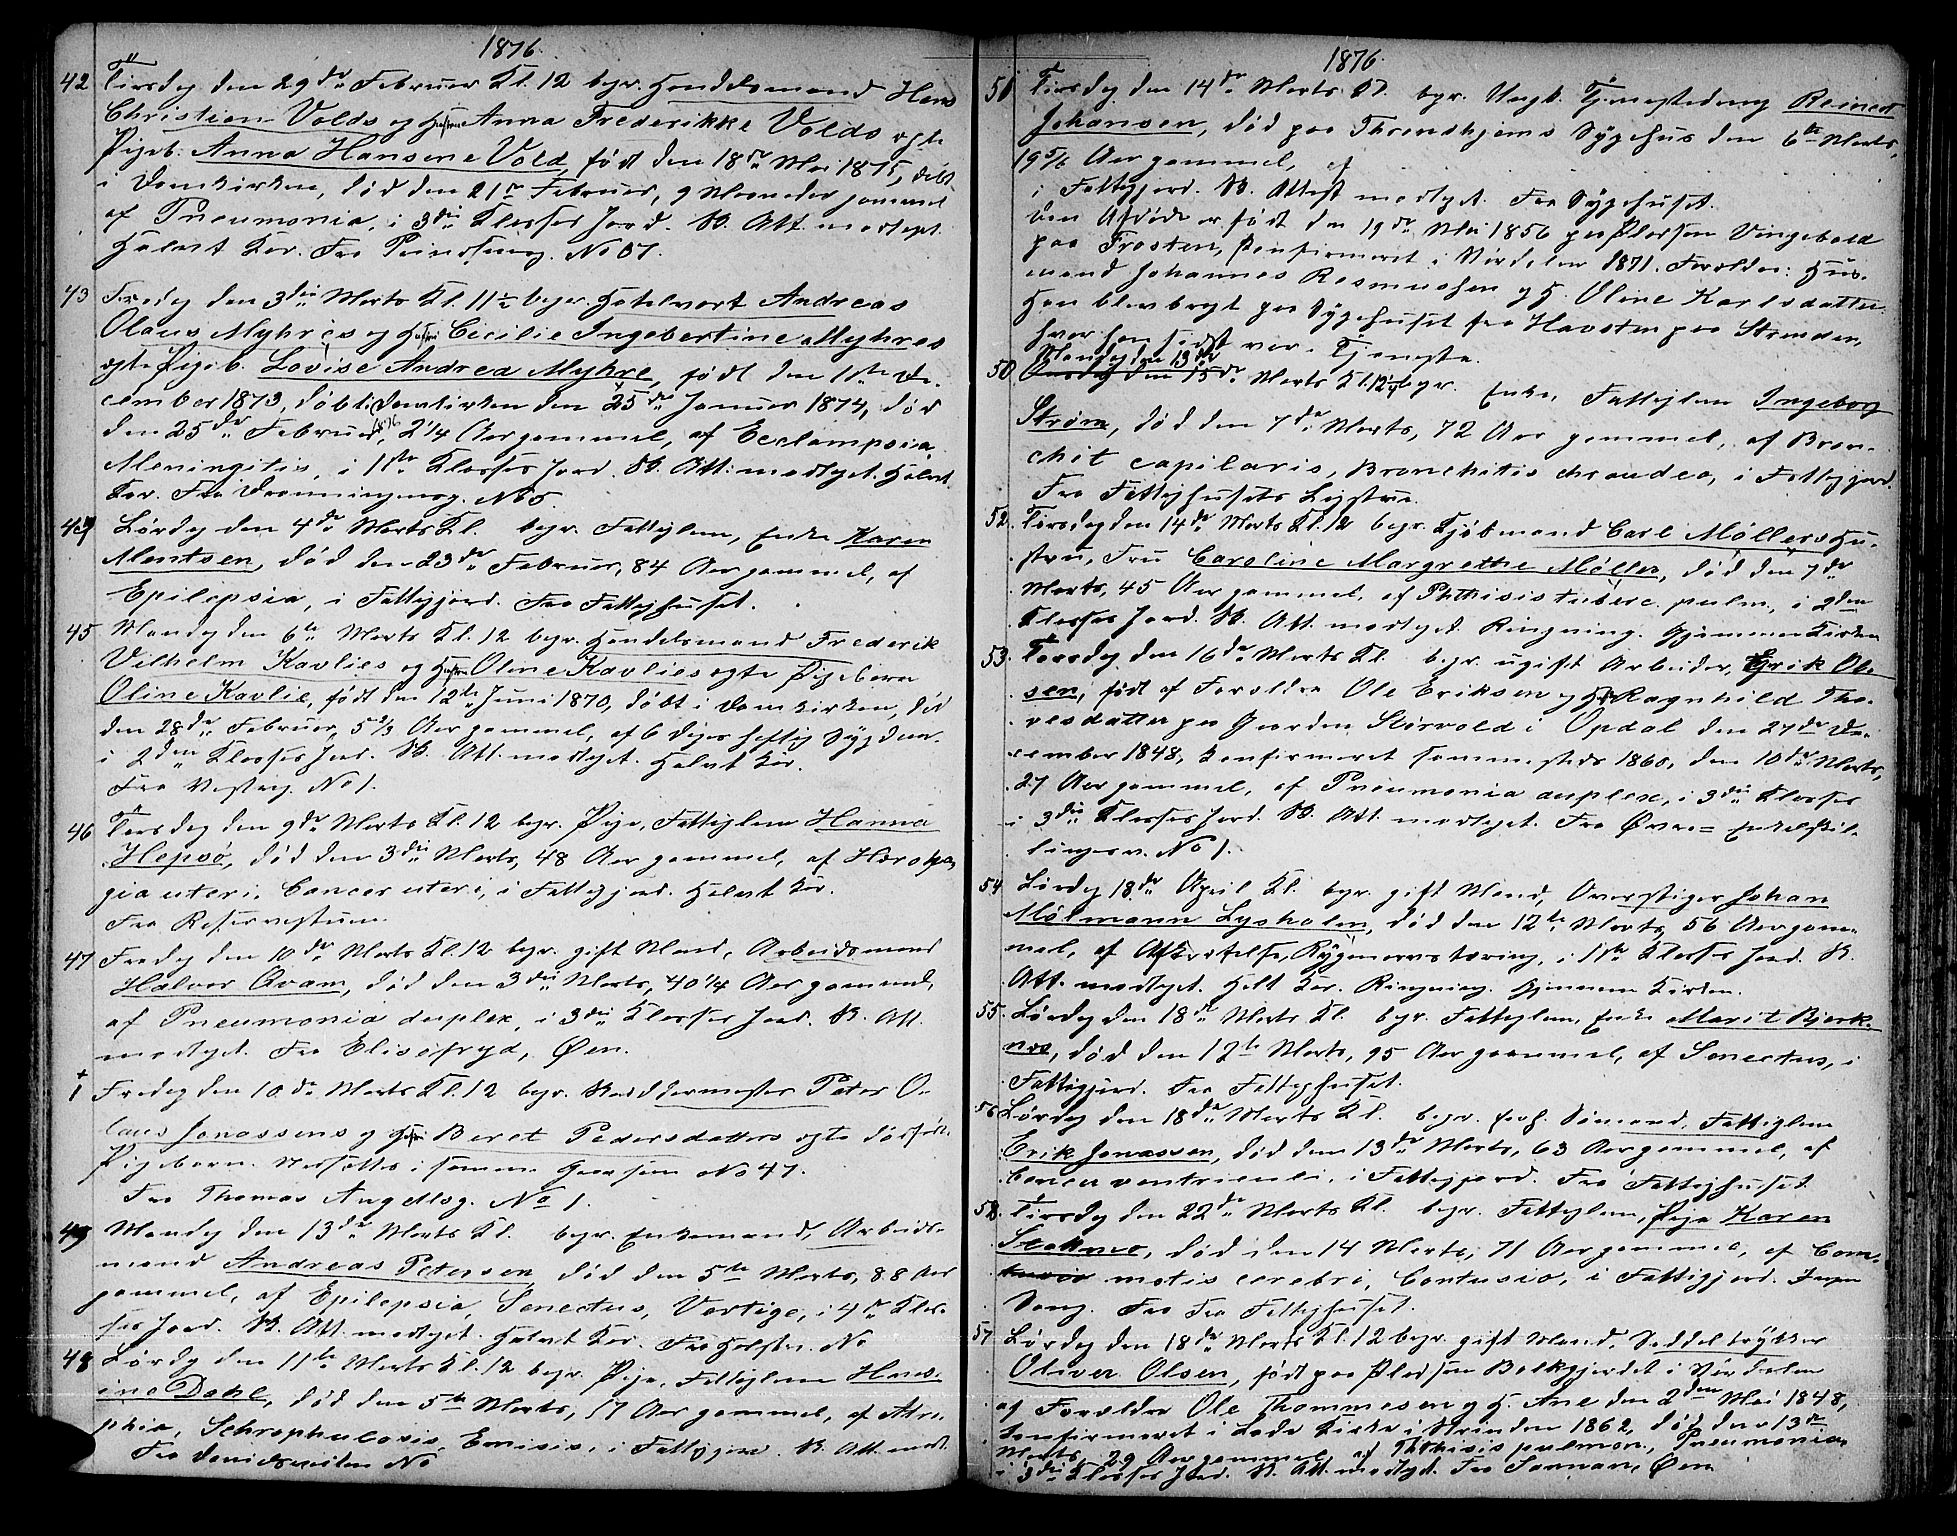 1876.
42 Tirsdag den 29de Februar Kl. 12 begr. Handelsmand Hans
Christian Volds og Hustru Anna Frederikke Volds ægte
Pigeb. Anna Hansine Vold, født den 18de Mai 1875, døbt
i Domkirken, død den 21de Februar, 9 Maaneder gammel
af Pneumonia, i 3die Klasses Jord. B. Att. modtaget
Halvt Kor. Fra Prindsensg. No 57.
43 Fredag den 3die Marts Kl. 11½ begr. Hotelvært Andreas
Olaus Myhres og Hustru Cecilie Ingebertine Myhres
ægte Pigeb. Lovise Andrea Myhre, født den 11te De-
cember 1873, døbt i Domkirken den 25de Januar 1874, død
den 25de Februar 1876, 2¼ Aar gammel, af Eclampsia,
Meningitis, i 1ste Klasses Jord. B. Att. modtaget. Halvt
Kor. Fra Dronningensg. No 5.
44 Lørdag den 4de Marts Kl. begr. Fattiglem, Enke Karen
Mentsen, død den 23de Februar, 84 Aar gammel, af
Epilepsia, i Fattigjord. Fra Fattighuset.
45 Mandag den 6te Marts Kl. 12 begr. Handelsmand Frederik
Vilhelm Kavlies og Hustru Oline Kavlies ægte Pigebarn
Oline Kavlie, født den 12te Juni 1870, døbt i Domkirken, død
den 28de Februar, 5 2/3 Aar gammel, af 6 Dages heftig Sygdom.
i 2den Klasses Jord. B. Att. modtaget. Halvt Kor.
Fra Vesterg. No 1.
46 Torsdag den 9de Marts Kl. 12 begr. Pige, Fattiglem Hanna
Hepsø, død den 3die Marts, 48 Aar gammel, af
gia uteri, Cancer uteri, i Fattigjord. Halvt Kor.
Fra
47 Fredag den 10de Marts Kl. 12 begr. gift Mand, Arbeidsmand
Halvor Qvam, død den 3die Marts, 40¼ Aar gammel,
af Pneumonia duplex, i 3die Klasses Jord. B. Att.
modtaget. Fra Elisefryd, Øen.
+
1 Fredag den 10de Marts Kl. 12 begr. Peter O-
laus Jonassens og Hustru Beret Pedersdatters ægte dødfødt
Pigebarn. Nedsattes i samme Grav som No 47.
Fra Thomas Angellsg. No 1.
49 Mandag den 13de Marts Kl. begr. Enkemand, Arbeids-
mand Andreas Petersen, død den 5te Marts, 88 Aar
gammel, af Epilepsia, Senectus, Vertigo, i 4de Klas-
ses Jord. B. Att. modtaget. Halvt Kor. Fra No
48 Lørdag den 11te Marts Kl. 12 begr. Pige, Fattiglem Hans-
ine Dahl, død den 5te Marts, 17 Aar gammel, af Atro-
phia, Schrophulosis, i Fattigjord. B. Att. modt.
Fra No
1876.
51 Tirsdag den 14de Marts Kl. begr. Ungk. Tjenestedreng Reinert
Johansen, død paa Throndhjems Sygehus den 6te Marts,
19 5/6 Aar gammel, af
i Fattigjord. B. Attest modtaget. Fra Sygehuset.
Den Afdøde er født den 19de Mai 1856 paa Pladsen
paa Frosten, Konfirmeret i Værdalen 1871. Forældre: Hus-
mand Johannes Rasmussen og H. Oline Karlsdatter
Han blev bragt paa Sygehuset fra Havsten paa Strinden,
hvor han sidst var i Tjeneste.
Mandag den 13de
50 Onsdag den 15de Marts Kl. 12½ begr. Enke, Fattiglem Ingeborg
Strøm, død den 7de Marts, 72 Aar gammel, af Bron-
chit capilaris, Bronchitis chronica, i Fattigjord.
Fra Fattighusets
52. Tirsdag den 14de Marts Kl. 12 begr. Kjøbmand Carl Møllers Hu-
stru, Fru Caroline Margrethe Møller, død den 7de
Marts, 45 Aar gammel, af Phthisis tuberc. pulm., i 2den
Klasses Jord. B. Att. modtaget. Ringning. Gjennem Kirken
53. Torsdag den 16de Marts Kl. begr. ugift Arbeider, Erik Ol-
sen, født af Forældre Ole Eriksen og H. Ragnhild Tho-
resdatter paa Gaarden Størvold i Opdal den 27de De-
cember 1848, Konfirmeret sammesteds 1860, den 10de Marts,
27 Aar gammel, af Pneumonia duplex, i 3die Klasses
i 3die Klasses Jord. B. Att. modtaget. Fra Øvre= Enkelskil-
lingsv. No 1.
54 Lørdag 18de April Kl. begr. gift Mand, Overstiger Johan
Møllmann Lysholm, død den 12te Marts, 56 Aar gam-
mel, af Afkræftelse, Rygmarvstæring, i 1ste Klasses Jord. B.
Att. modtaget. Helt Kor. Ringning. Gjennem Kirken.
55. Lørdag den 18de Marts Kl. begr. Fattiglem, Enke Marit Bjerk-
næs, død den 12te Marts, 95 Aar gammel, af Senectus, i
Fattigjord. Fra Fattighuset.
56 Lørdag den 18de Marts Kl. begr. Sømand, Fattiglem
Erik Jonassen, død den 13de Marts, 63 Aar gammel, af
Cancer ventriculi, i Fattigjord. Fra Fattighuset.
58. Tirsdag den 22de Marts Kl. begr. Fattiglem, Pige Karen
død den 14 Marts, 71 Aar gammel, af Com-
motis cerebri, Contusio, i Fattigjord. Ingen
Sang. Fra Fra Fattighuset.
57 Lørdag den 18de Marts Kl. 12 begr. gift Mand, Seddeltrykker
Oliver Olsen, født paa Pladsen Balkgjerdet i Værdalen
af Forældre Ole Thommesen og H. Ane den 2den Mai 1848,
Konfirmeret i Lade Kirke i Strinden 1862, død den 13de
Marts, 29 Aar gammel, af Phthisis pulmon., Pneumonia
i 3die Klasses Jord. B. Att. modtaget. Fra Sannan, Øen